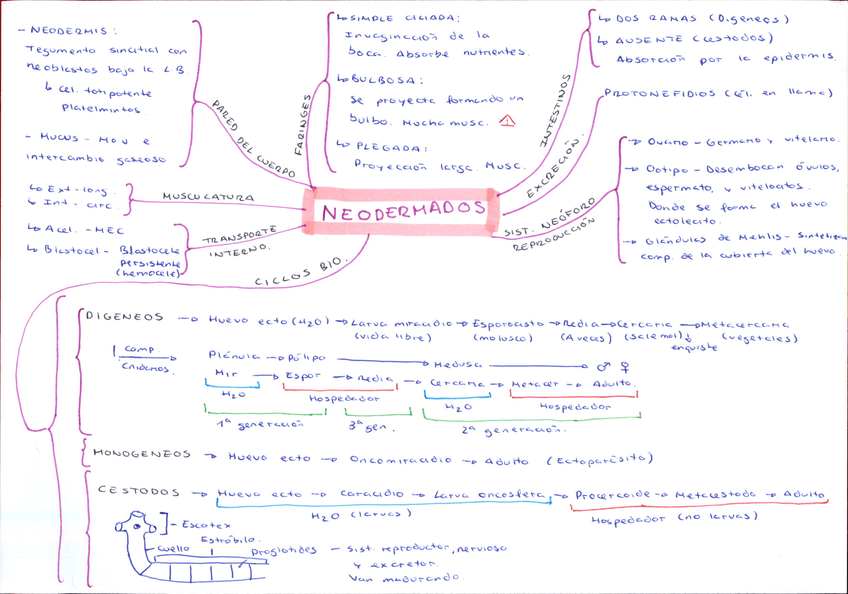 - NEODERMIS:
Tegumento sincitial con
neoblastos bajo la L.B.
↳ Cél. totipotente
platelmintos.
- Mucus - Mov e
intercambio gaseoso
PARED DEL CUERPO
↳ Ext - long.
↳ Int - circ.
MUSCULATURA
↳ Acel. - MEC
↳ Blastocel - Blastocele
persistente
(hemocele)
TRANSPORTE
INTERNO.
FARINGES
↳ SIMPLE CILIADA:
Invaginación de la
boca. Absorbe nutrientes.
↳ BULBOSA:
Se proyecta formando un
bulbo. Mucha musc.
↳ PLEGADA:
Proyección larga. Musc.
NEODERMADOS
INTESTINOS
↳ DOS RAMAS (Digeneos)
↳ AUSENTE (cestodos)
Absorción por la epidermis.
EXCRECIÓN.
PROTONEFIDIOS (Cél. en llama)
SIST. NEÓFORO
REPRODUCCIÓN
→ Ovario - Germario y vitelario.
→ Ootipo - Desembocan óvulos,
espermato. y viteloctos.
Donde se forma el huevo
ectolecito.
→ Glándulas de Mehlis - Sintetizan
comp. de la cubierta del huevo.
CICLOS BIO.
DIGENEOS → Huevo ecto (H2O) → Larva miracidio → Esporocisto → Redia → Cercaria → Metacercaria
(vida libre) (molusco) (A veces) (sale mol) ↓ (vegetales)
enquiste
Comp.
Cnidarios.
Plánula → Pólipo → Medusa → ♂ ♀
Mir → Espor → Redia → Cercaria → Metacer → Adulto.
H2O Hospedador H2O Hospedador
1ª generación 3ª gen. 2ª generación.
MONOGENEOS → Huevo ecto → Oncomiracidio → Adulto (Ectoparásito)
CESTODOS → Huevo ecto → Coracidio → Larva oncosfera → Procercoide → Metacestodo → Adulto
H2O (larvas) Hospedador (no larvas)
- Escolex
Estróbilo.
Cuello Proglotides - Sist. reproductor, nervioso
y excretor.
Van madurando.